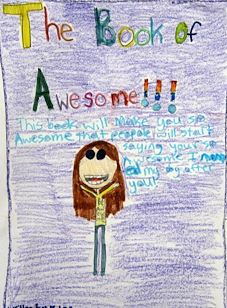 The Book of
Awesome!!!
This book will make you so
Awesome that people will start
saying your so
Awesome I nam
ed my dog after
you!